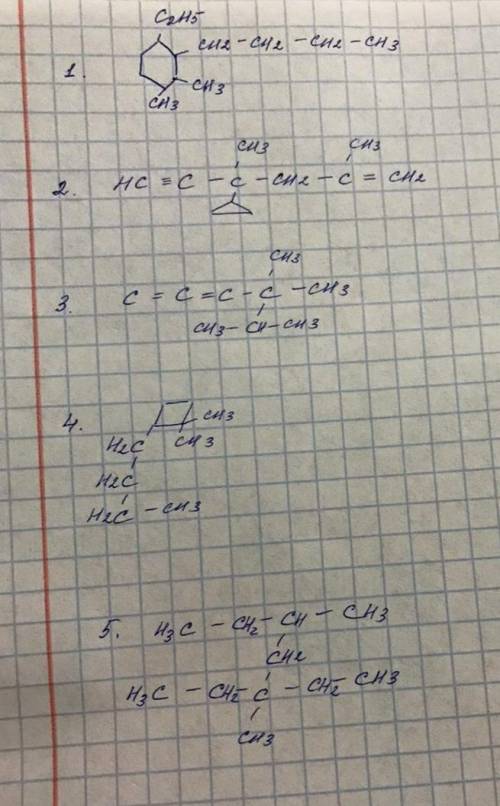 C2H5
CH2 - CH2 - CH2 - CH3
1.
CH3
CH3
CH3 CH3
2. HC ≡ C - C - CH2 - C = CH2
CH3
3. C = C = C - C - CH3
CH3 - CH - CH3
4. CH3
H2C CH3
H2C
H2C - CH3
5. H3C - CH2 - CH - CH3
CH2
H3C - CH2 - C - CH2 - CH3
CH3